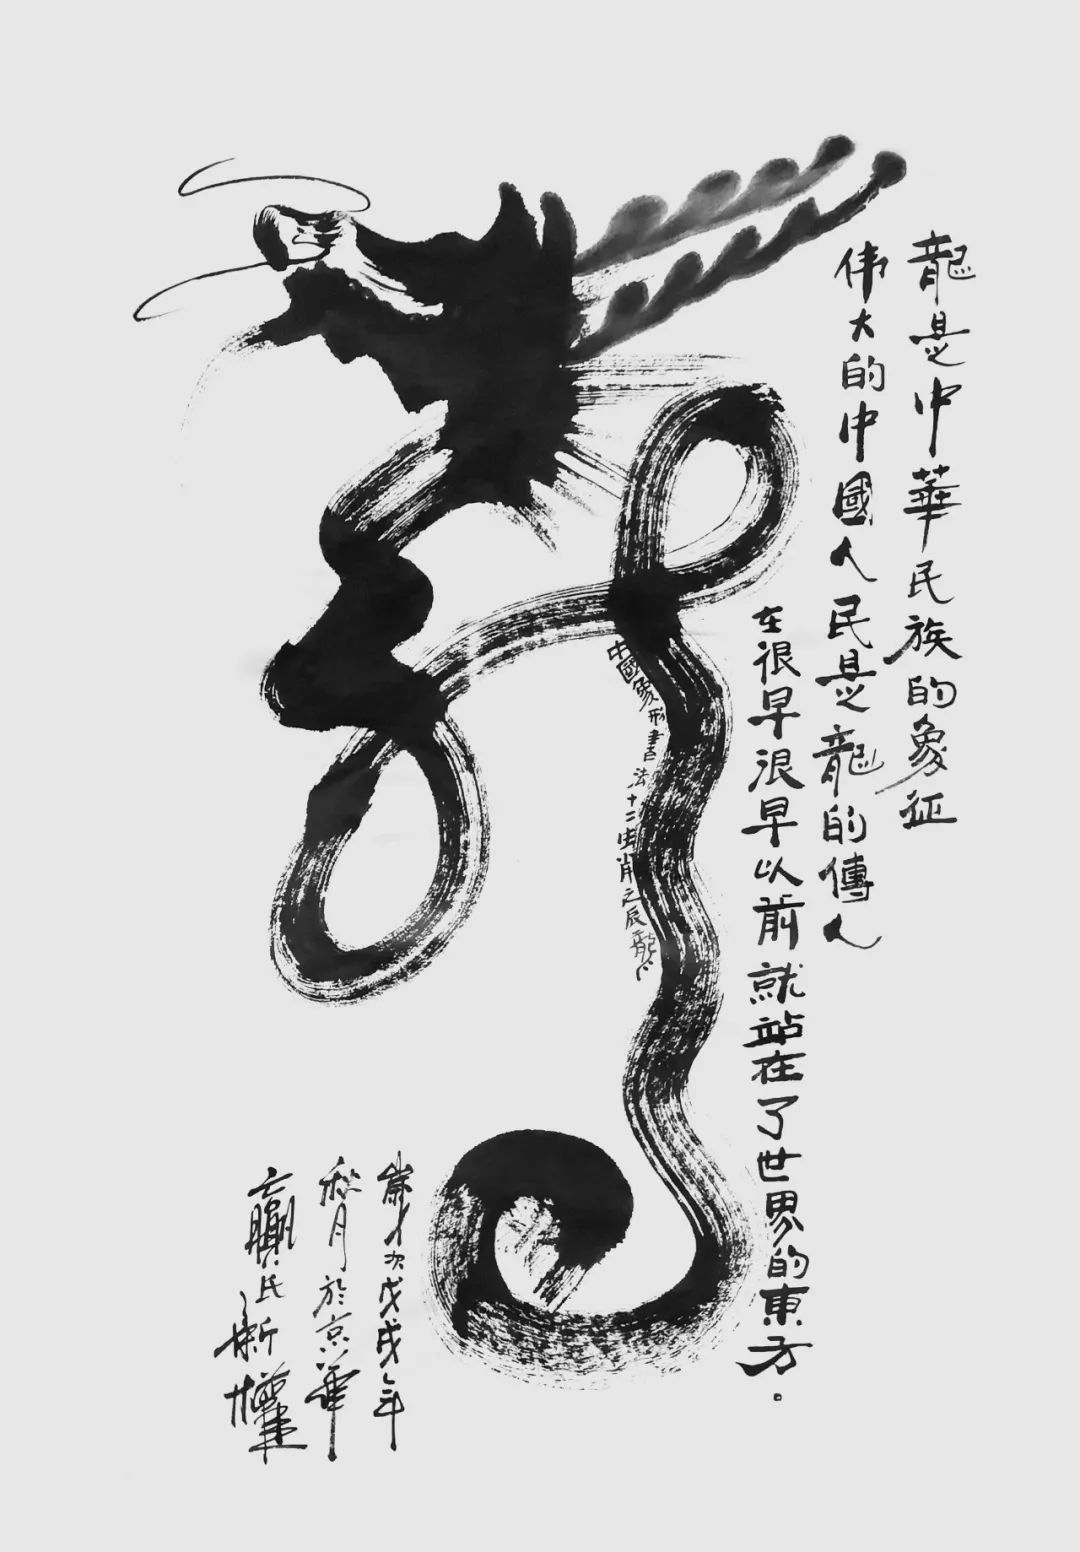 龍是中华民族的象征
伟大的中國人民是龍的傳人
在很早很早以前就站在了世界的東方。
中國象形書法十二生肖之辰龍
歲次戊戌年
秋月於京華
嬴氏新